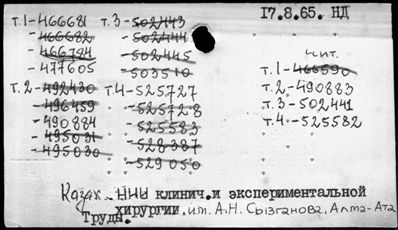 17.8.65. НД
т.1-466681 т.3-502443
-466682 -502444
-466784 -502445
-477605 -503510
чит.
т.1-466590
т.2-492430 т.4-525727
т.2-490883
-496459 -525728
т.3-502441
-490884 -525583
т.4-525582
-495031 -528387
-495030 -529050
Казах НИИ клинич. и экспериментальной
хирургии. им. А.Н. Сызганова, Алма-Ата
Трудн.